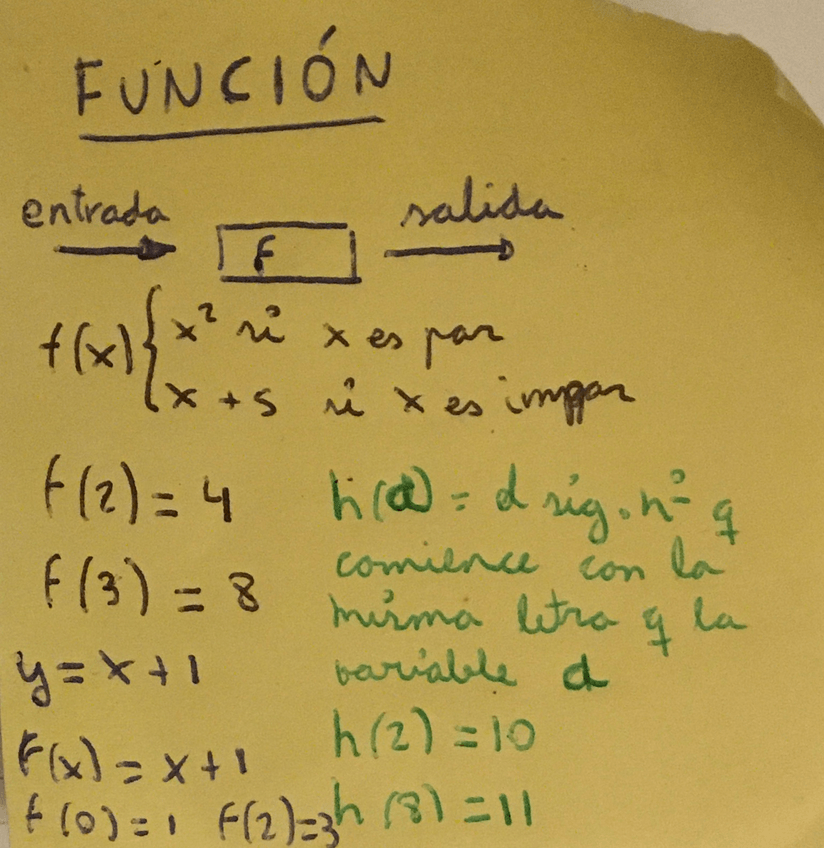 FUNCIÓN
entrada
F
salida
f(x) { x² si x es par
x + 5 si x es impar
F(2) = 4
F(3) = 8
y = x + 1
F(x) = x + 1
f(0) = 1 F(2) = 3
h(d) = d sig. nº q
comience con la
misma letra q la
variable d
h(2) = 10
h(8) = 11